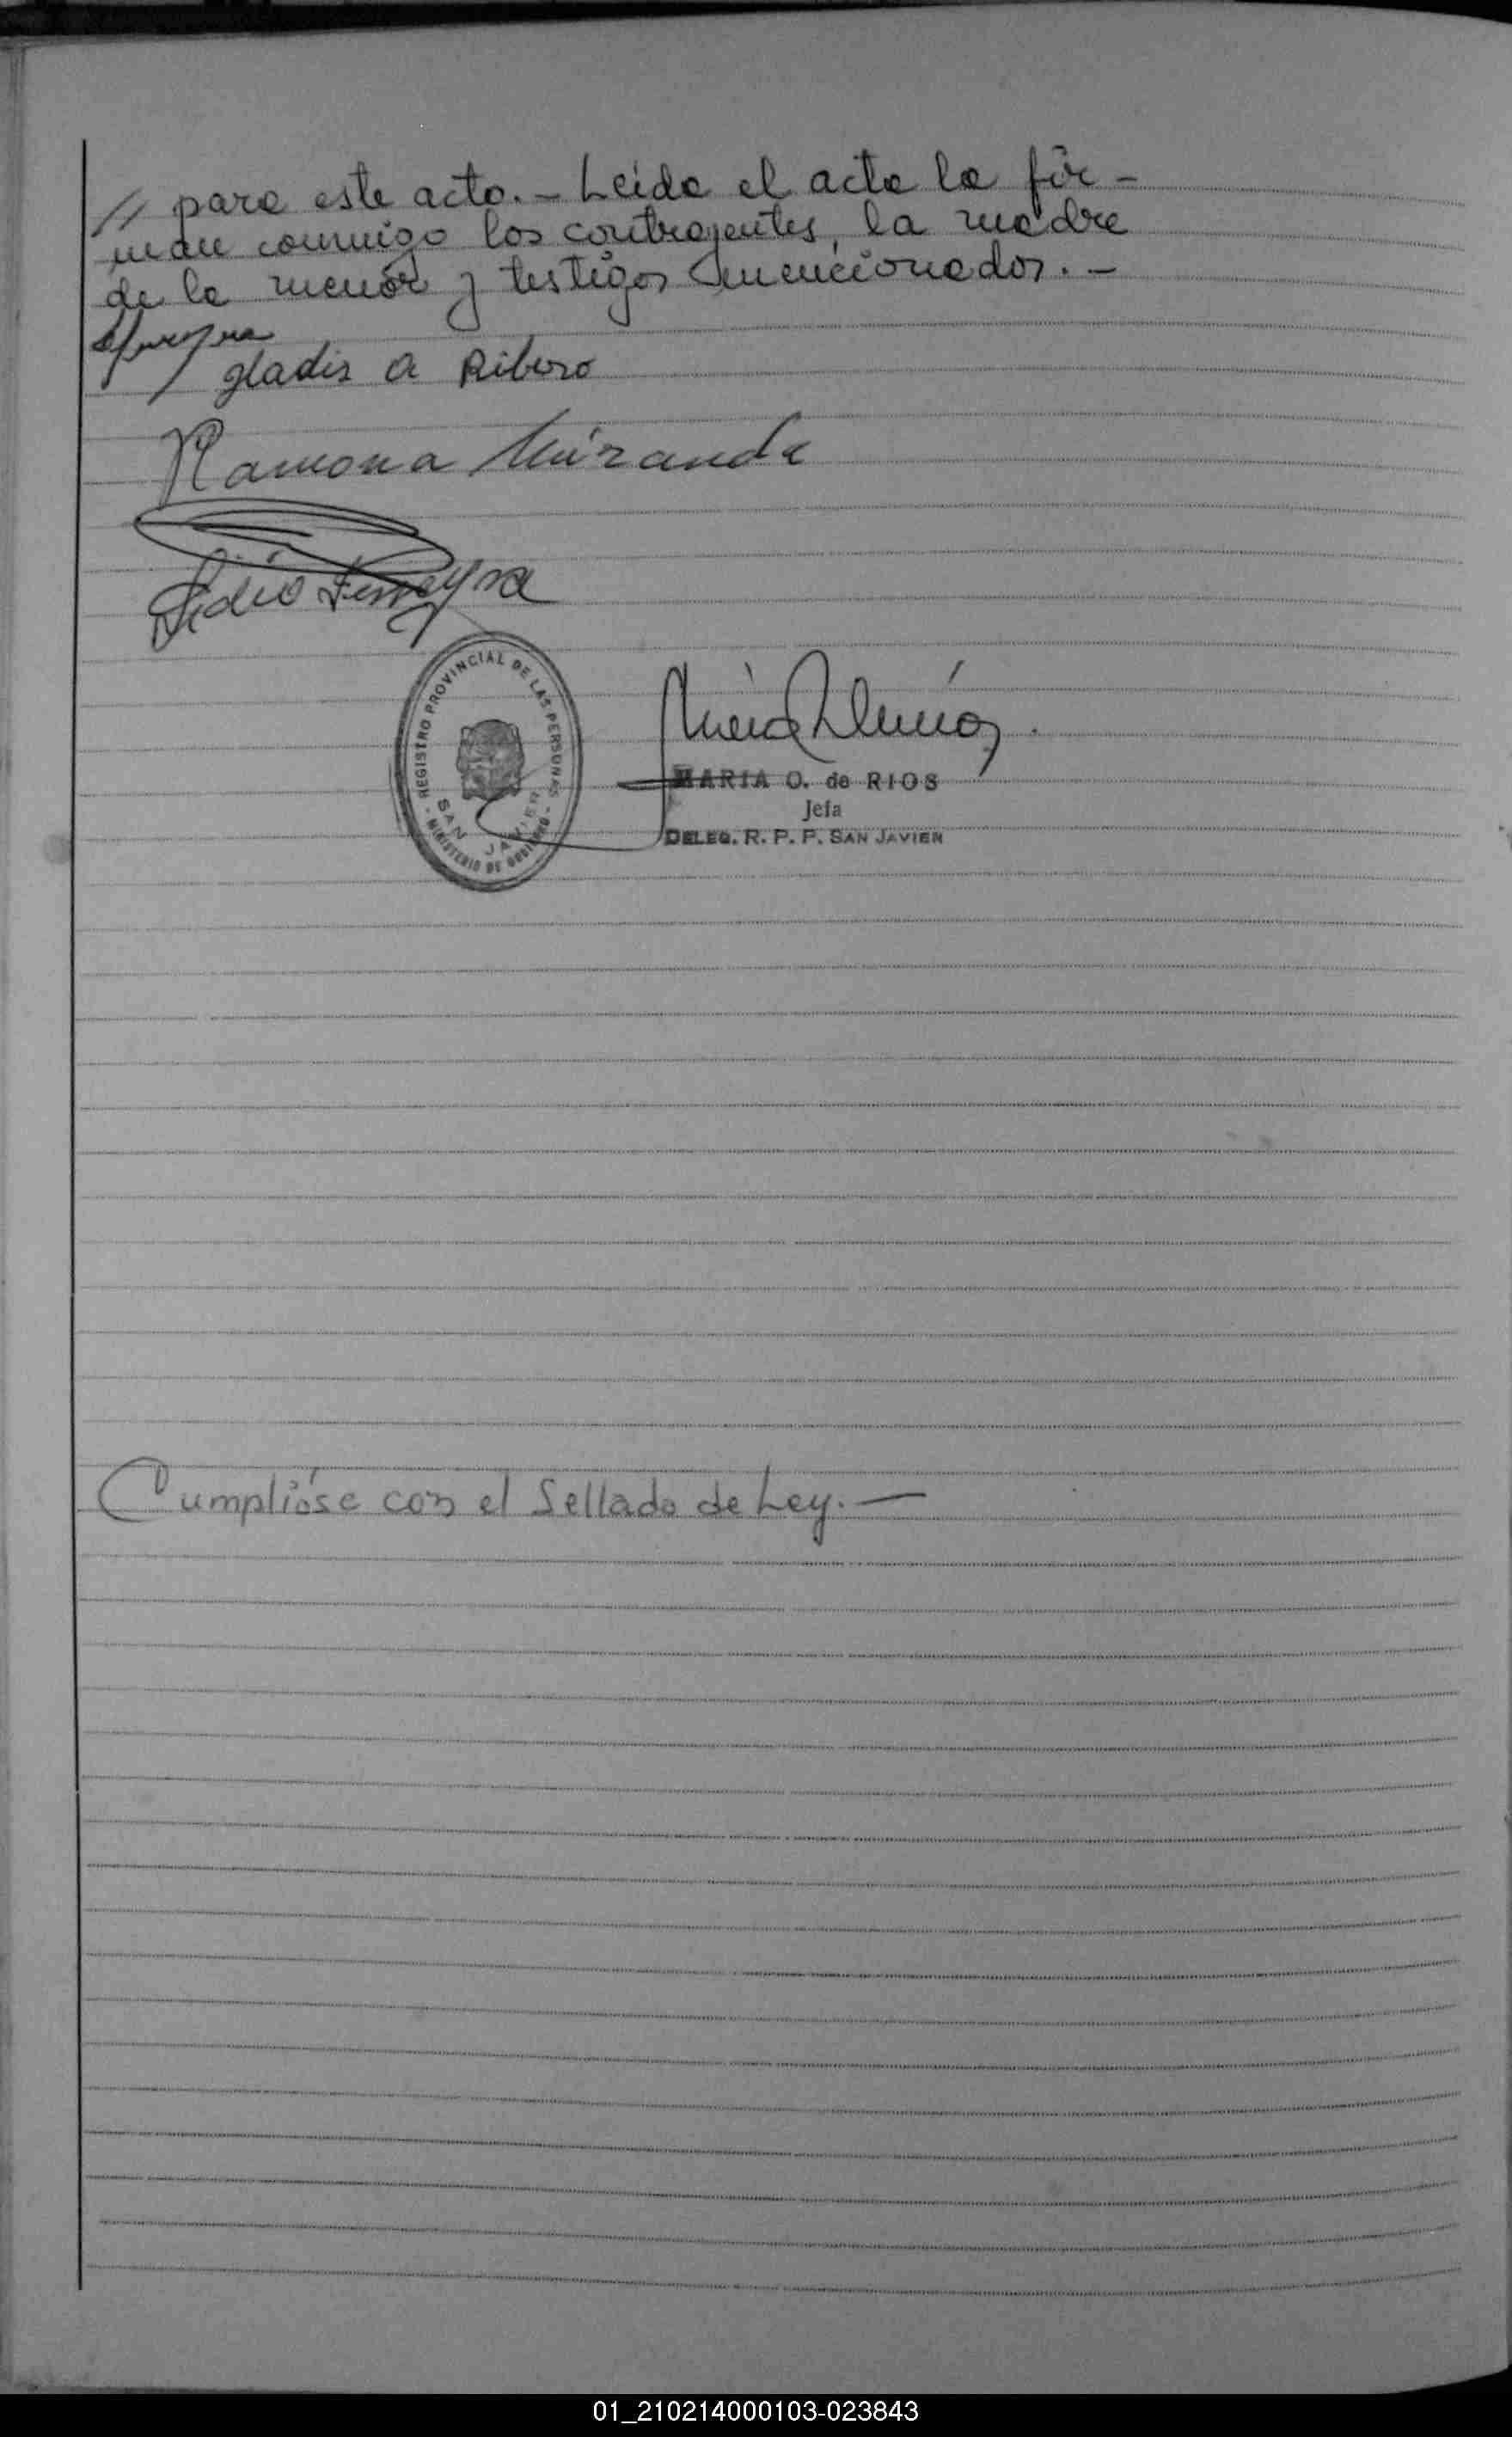 // para este acto.- Leida el acta la fir-
man conmigo los contrayentes, la madre
de la menor y testigos mencionados.-
gladis a Ribero
Ramona Miranda
Lidio Ferreyra
REGISTRO PROVINCIAL DE LAS PERSONAS
SAN JAVIER
- MINISTERIO DE GOBIERNO -
MARIA O. de RIOS
Jefa
DELEG. R. P. P. SAN JAVIER
Cumplióse con el Sellado de Ley.-
01_210214000103-023843